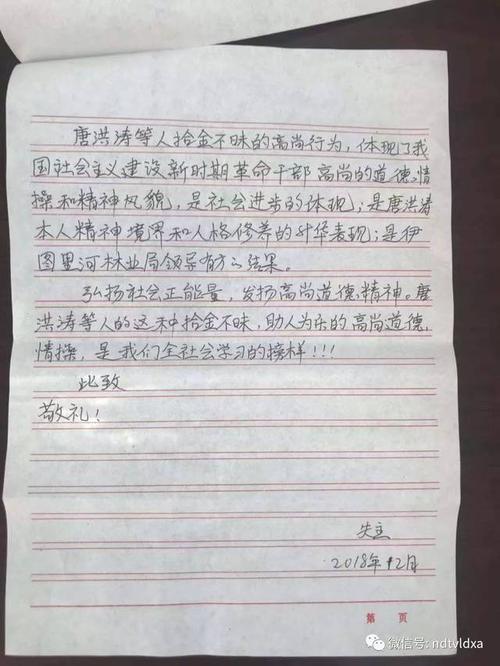 唐洪涛等人拾金不昧的高尚行为，体现了我
国社会主义建设新时期革命干部高尚的道德情
操和精神风貌，是社会进步的体现；是唐洪涛
本人精神境界和人格修养的升华表现；是伊
图里河林业局领导有方的结果。
弘扬社会正能量，发扬高尚道德精神。唐
洪涛等人的这种拾金不昧，助人为乐的高尚道德
情操，是我们全社会学习的榜样！！！
此致
敬礼！
失主
2018年12月
第 页
微信号: ndtvldxa